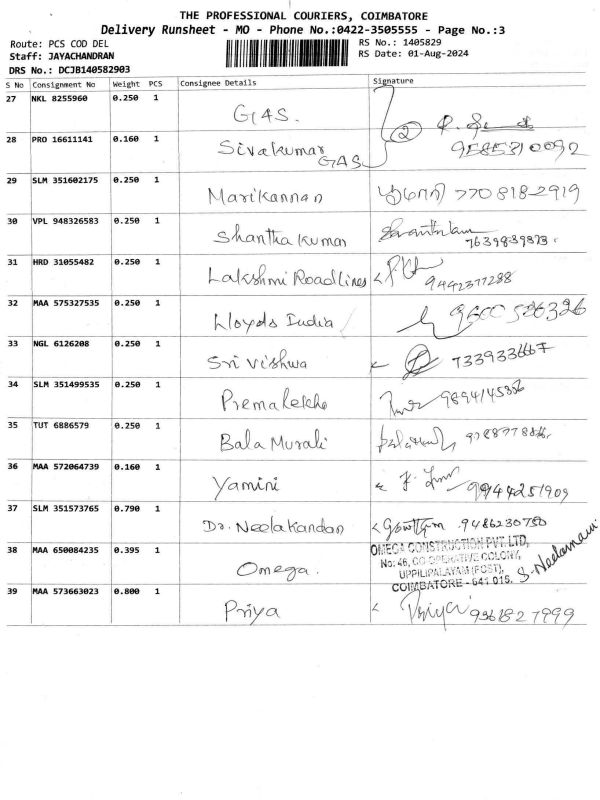 THE PROFESSIONAL COURIERS, COIMBATORE
Delivery Runsheet - MO - Phone No.:0422-3505555 - Page No.:3
Route: PCS COD DEL
RS No.: 1405829
Staff: JAYACHANDRAN
RS Date: 01-Aug-2024
DRS No.: DCJB140582903
S No Consignment No Weight PCS Consignee Details Signature
27 NKL 8255960 0.250 1 GAS.
28 PRO 16611141 0.160 1 Sivakumar GAS 2 9585310092
29 SLM 351602175 0.250 1 Marikannan 7708182919
30 VPL 948326583 0.250 1 Shantha kumar
31 HRD 31055482 0.250 1 Lakshmi Roadlines 9442377288
32 MAA 575327535 0.250 1 Lloyds India 9600 526326
33 NGL 6126208 0.250 1 Sri Vishwa 7339333667
34 SLM 351499535 0.250 1 Premalekha
35 TUT 6886579 0.250 1 Bala Murali
36 MAA 572064739 0.160 1 Yamini 9944251909
37 SLM 351573765 0.790 1 Dr. Neelakandan Gowtham 9486230750
38 MAA 650084235 0.395 1 Omega.
OMEGA CONSTRUCTION PVT. LTD,
No: 46, CO OPERATIVE COLONY,
UPPILIPALAYAM (POST),
COIMBATORE - 641 015.
39 MAA 573663023 0.800 1 Priya Priya 9361827999